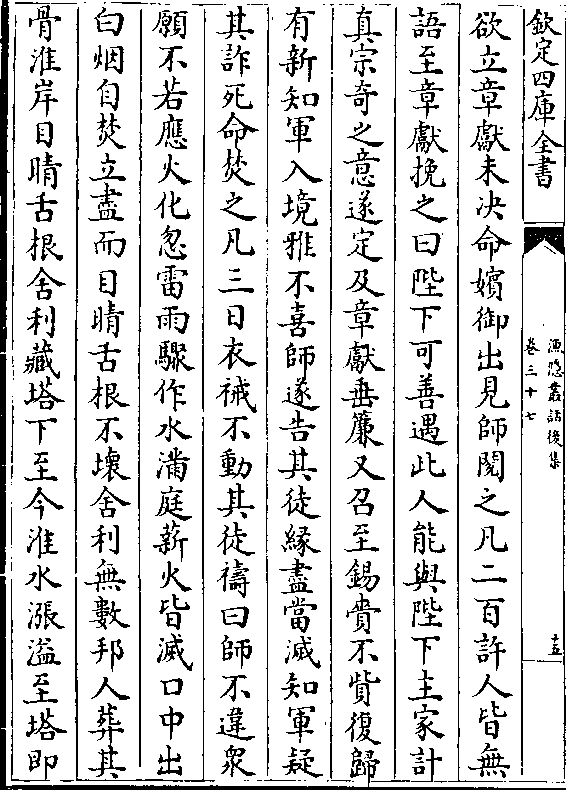 欽定四庫全書
漁隱叢話後集
卷三十七
十五
欲立章獻未决命嬪御出見師閱之凡二百許人皆無
語至章獻挽之曰陛下可善遇此人能與陛下主家計
真宗奇之意遂定及章獻垂簾又召至錫賚不貲復歸
有新知軍入境雅不喜師遂告其徒縁盡當滅知軍疑
其詐死命焚之凡三日衣裓不動其徒禱曰師不違衆
願不若應火化忽雷雨驟作水滿庭薪火皆滅口中出
白烟自焚立盡而目睛舌根不壞舍利無數邦人葬其
骨淮岸目睛舌根舍利藏塔下至今淮水漲溢至塔即